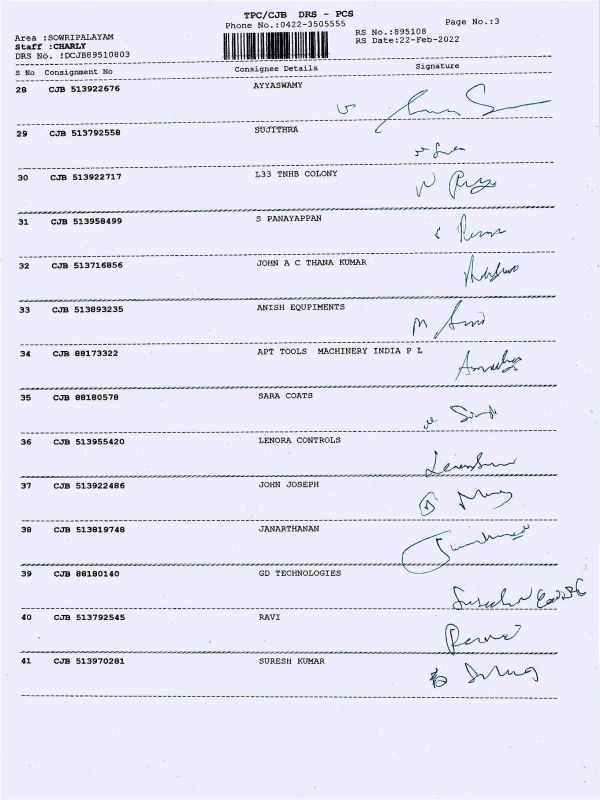 TPC/CJB DRS - PCS
Phone No.:0422-3505555
Page No.:3
Area :SOWRIPALAYAM
Staff :CHARLY
DRS No. :DCJB89510803
RS No.:895108
RS Date:22-Feb-2022
S No Consignment No Consignee Details Signature
28 CJB 513922676 AYYASWAMY
29 CJB 513792558 SUJITHRA
30 CJB 513922717 L33 TNHB COLONY
31 CJB 513958499 S PANAYAPPAN
32 CJB 513716856 JOHN A C THANA KUMAR
33 CJB 513893235 ANISH EQUPIMENTS
34 CJB 88173322 APT TOOLS MACHINERY INDIA P L
35 CJB 88180578 SARA COATS
36 CJB 513955420 LENORA CONTROLS
37 CJB 513922486 JOHN JOSEPH
38 CJB 513819748 JANARTHANAN
39 CJB 88180140 GD TECHNOLOGIES
40 CJB 513792545 RAVI
41 CJB 513970281 SURESH KUMAR